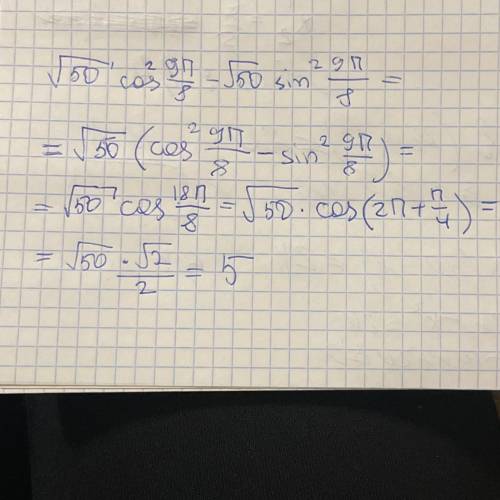 √50 cos² 9π/8 - √50 sin² 9π/8 =
= √50 (cos² 9π/8 - sin² 9π/8) =
= √50 cos 18π/8 = √50 · cos(2π + π/4) =
= √50 · √2/2 = 5